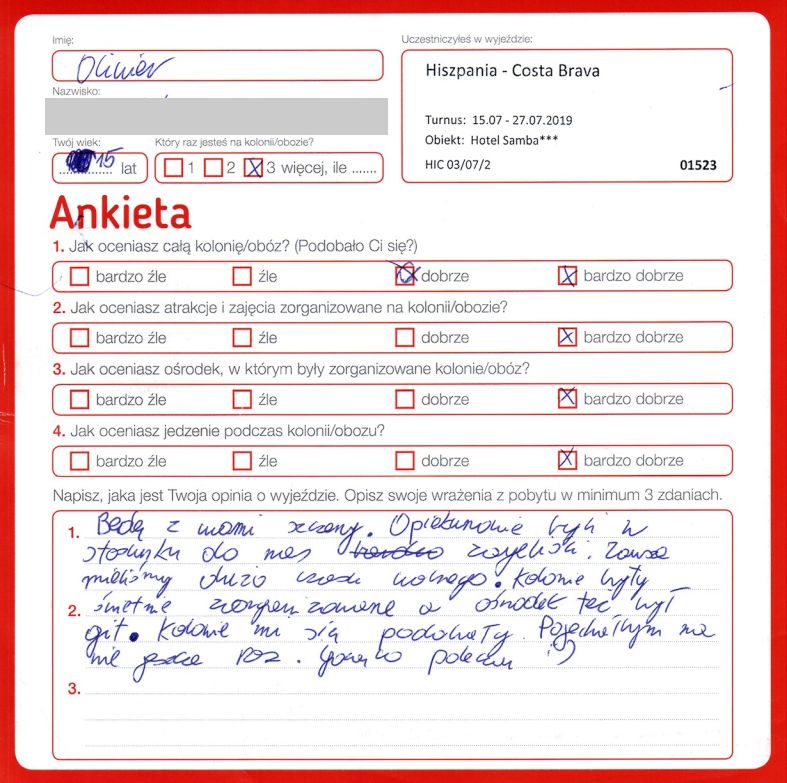 Imię:
Oliwier
Uczestniczyłeś w wyjeździe:
Hiszpania - Costa Brava
Nazwisko:
Turnus: 15.07 - 27.07.2019
Obiekt: Hotel Samba***
HIC 03/07/2 01523
Twój wiek:
15 lat
Który raz jesteś na kolonii/obozie?
1 2 3 więcej, ile .......
Ankieta
1. Jak oceniasz całą kolonię/obóz? (Podobało Ci się?)
bardzo źle źle dobrze bardzo dobrze
2. Jak oceniasz atrakcje i zajęcia zorganizowane na kolonii/obozie?
bardzo źle źle dobrze bardzo dobrze
3. Jak oceniasz ośrodek, w którym były zorganizowane kolonie/obóz?
bardzo źle źle dobrze bardzo dobrze
4. Jak oceniasz jedzenie podczas kolonii/obozu?
bardzo źle źle dobrze bardzo dobrze
Napisz, jaka jest Twoja opinia o wyjeździe. Opisz swoje wrażenia z pobytu w minimum 3 zdaniach.
1. Będę z wami szczery. Opiekunowie byli w
stosunku do nas bardzo zajebiści. Zawsze
mieliśmy dużo czasu wolnego. Kolonie były
2. świetnie zorganizowane a ośrodek też był
git. Kolonie mi się podobały. Pojechałbym na
nie jeszcze raz. Gorąco polecam :)
3.